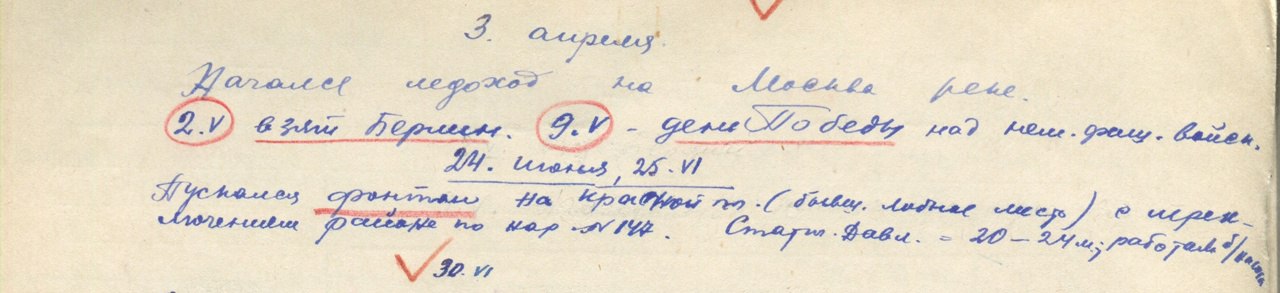 3. апреля.
Начался ледоход на Москва реке.
2.V взят Берлин. 9.V - день Победы над нем. фаш. войск.
24. июня, 25. VI
Пускался фонтан на Красной пл. (бывш. лобное место) с перек-
лючением района по кар. № 147. Статич. давл. = 20 – 24 м; работал б/насоса
30. VI